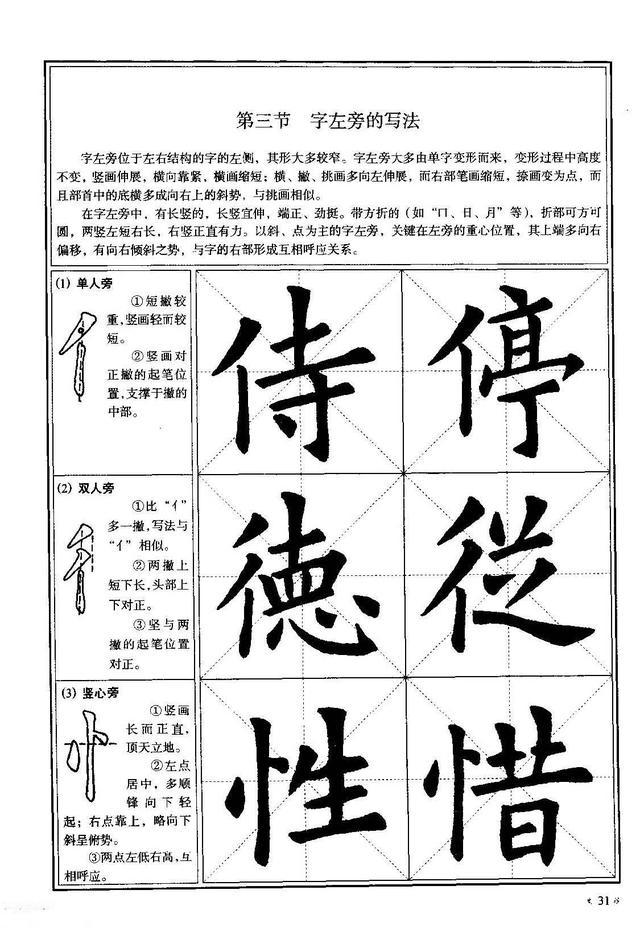 第三节 字左旁的写法
字左旁位于左右结构的字的左侧，其形大多较窄。字左旁大多由单字变形而来，变形过程中高度
不变，竖画伸展，横向靠紧，横画缩短；横、撇、挑画多向左伸展，而右部笔画缩短，捺画变为点，而
且部首中的底横多成向右上的斜势，与挑画相似。
在字左旁中，有长竖的，长竖宜伸、端正、劲挺。带方折的（如“口、日、月”等），折部可方可
圆，两竖左短右长，右竖正直有力。以斜、点为主的字左旁，关键在左旁的重心位置，其上端多向右
偏移，有向右倾斜之势，与字的右部形成互相呼应关系。
(1) 单人旁
①短撇较
重，竖画轻而较
短。
②竖画对
正撇的起笔位
置，支撑于撇的
中部。
侍 停
(2) 双人旁
①比“亻”
多一撇，写法与
“亻”相似。
②两撇上
短下长，头部上
下对正。
③竖与两
撇的起笔位置
对正。
德 從
(3) 竖心旁
①竖画
长而正直，
顶天立地。
②左点
居中，多顺
锋向下轻
起；右点靠上，略向下
斜呈俯势。
③两点左低右高，互
相呼应。
性 惜
31